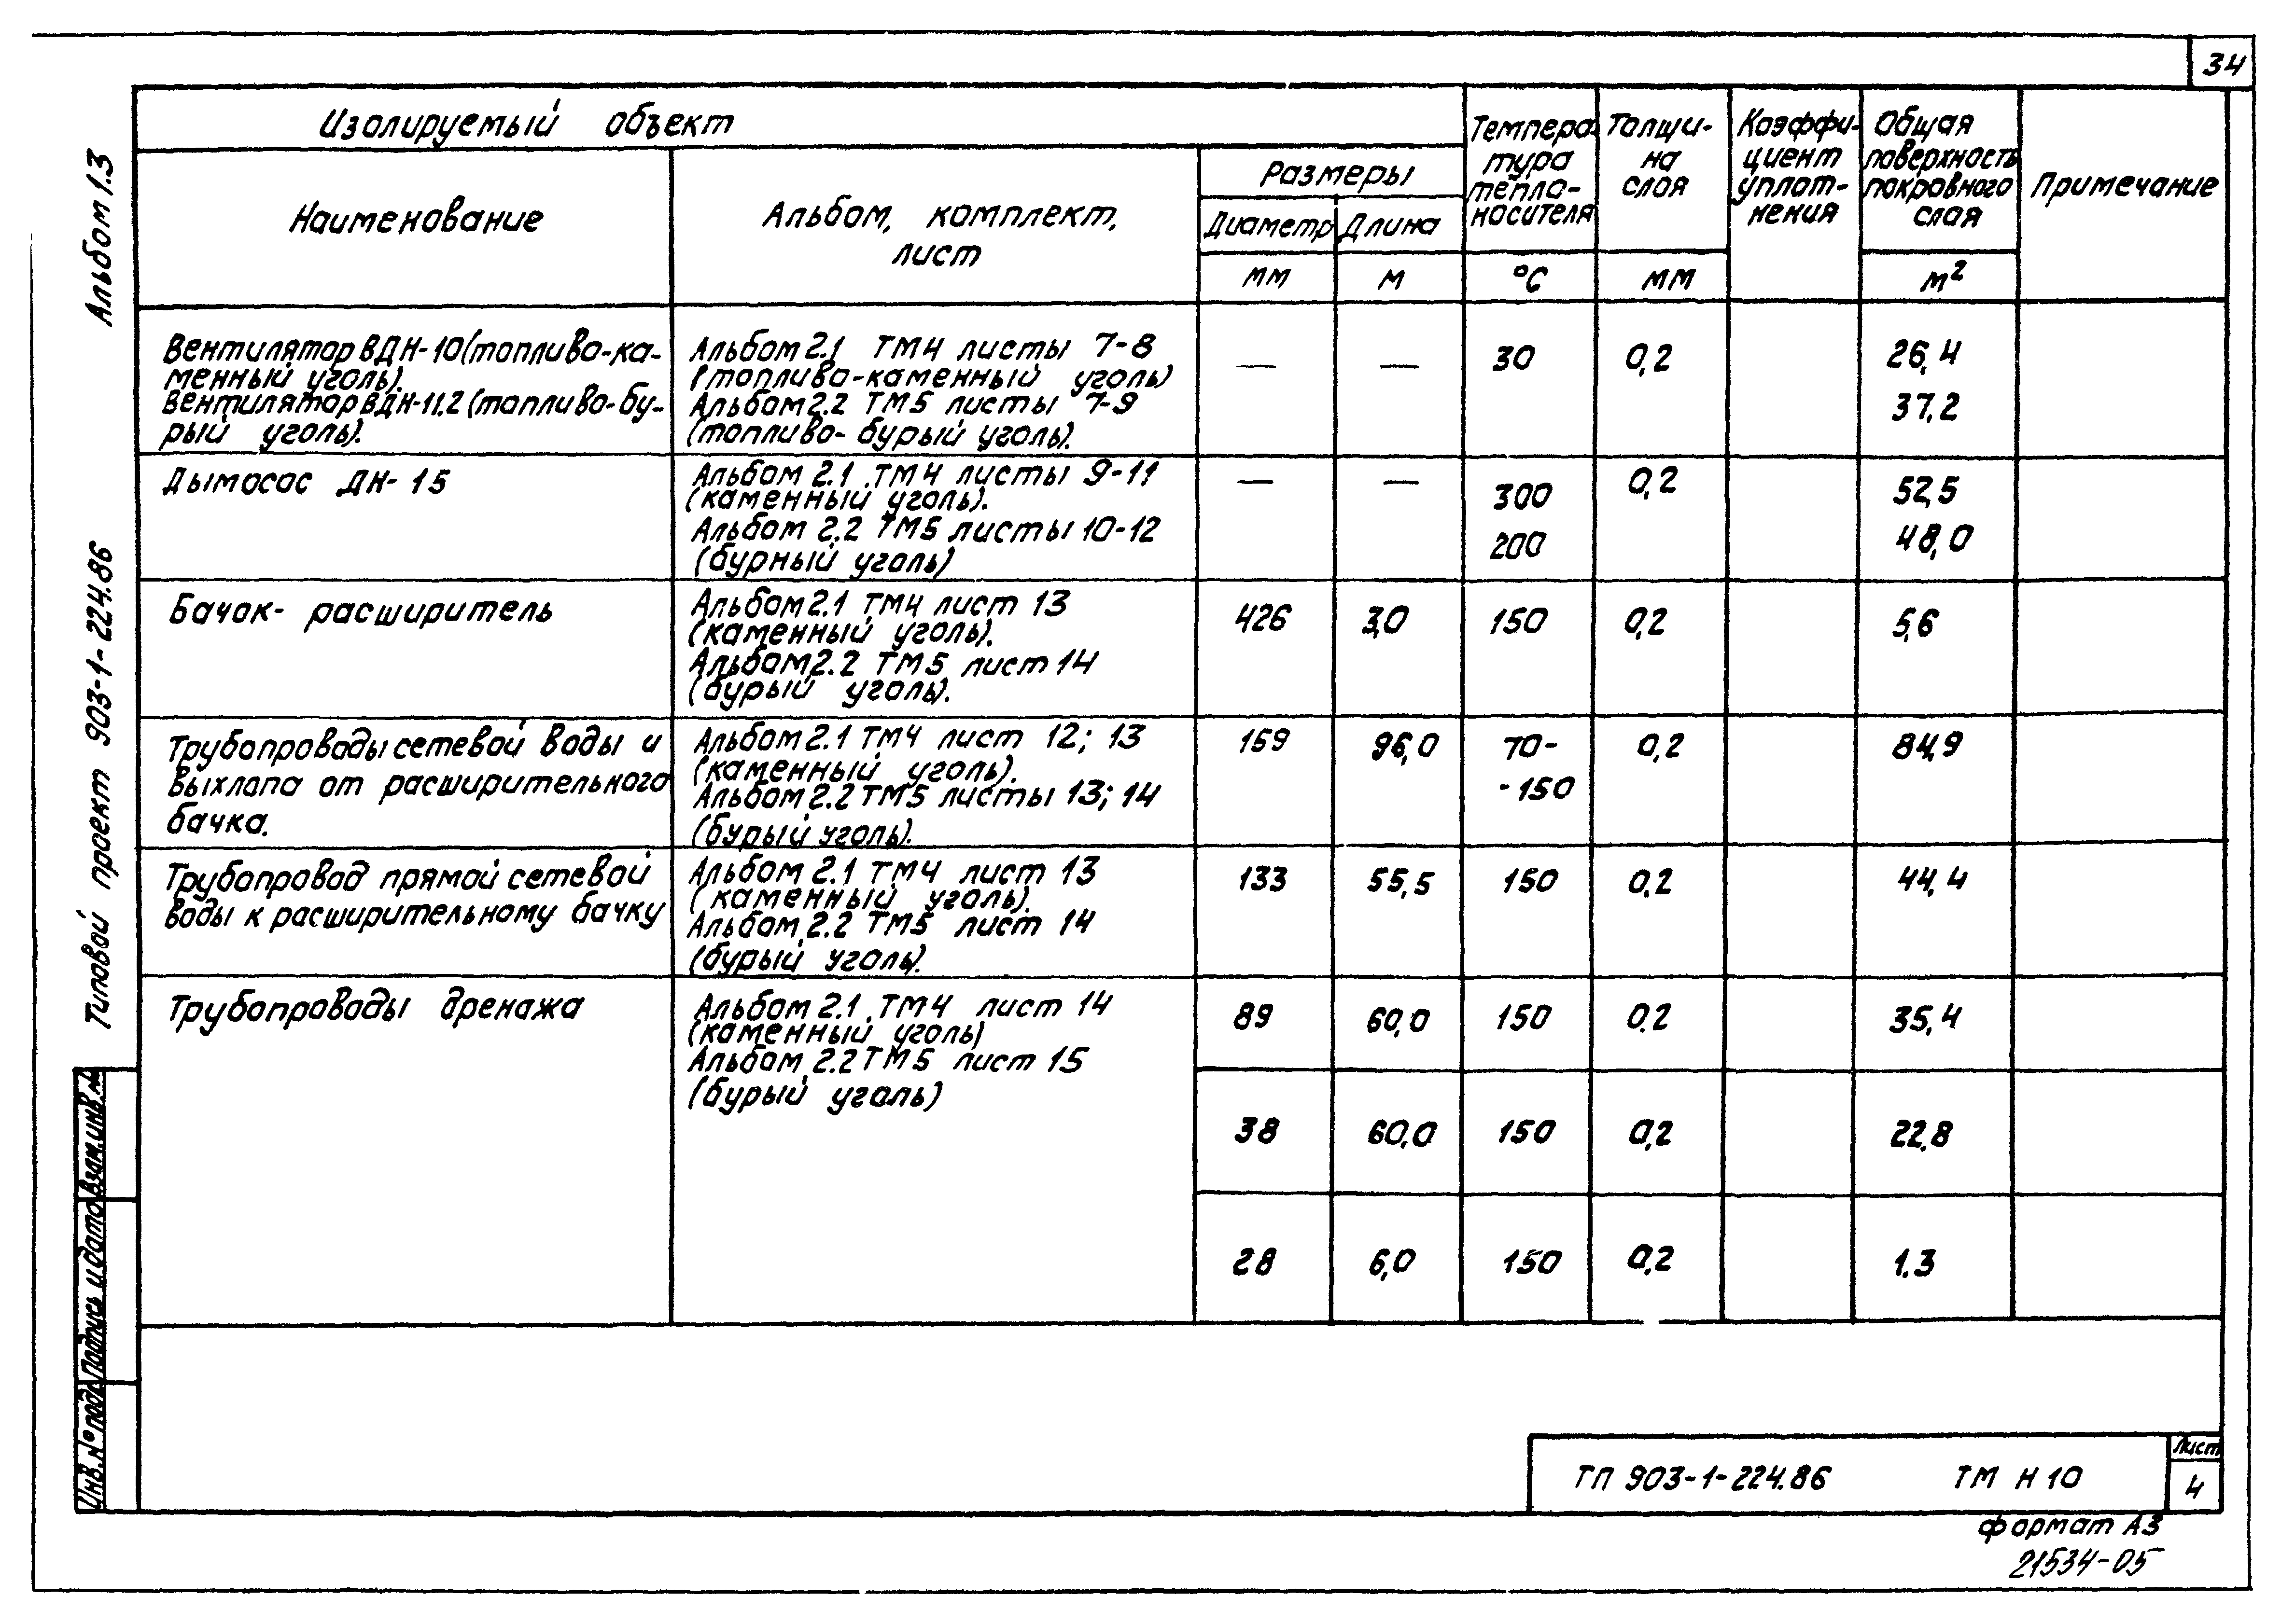 34
Альбом 1.3
Типовой проект 903-1-224.86
Изолируемый объект
Наименование
Альбом, комплект,
лист
Размеры
Диаметр
Длина
мм
м
Темпера-
тура
тепло-
носителя
°С
Толщи-
на
слоя
мм
Коэффи-
циент
уплот-
нения
Общая
поверхность
покровного
слоя
м²
Примечание
Вентилятор ВДН-10 (топливо-ка-
менный уголь).
Вентилятор ВДН-11.2 (топливо-бу-
рый уголь).
Альбом 2.1 ТМ4 листы 7-8
(топливо-каменный уголь)
Альбом 2.2 ТМ5 листы 7-9
(топливо-бурый уголь).
— — 30 0,2 26,4
37,2
Дымосос ДН-15
Альбом 2.1 ТМ4 листы 9-11
(каменный уголь).
Альбом 2.2 ТМ5 листы 10-12
(бурный уголь)
— — 300 0,2 52,5
200 48,0
Бачок-расширитель
Альбом 2.1 ТМ4 лист 13
(каменный уголь).
Альбом 2.2 ТМ5 лист 14
(бурый уголь).
426 3,0 150 0,2 5,6
Трубопроводы сетевой воды и
выхлопа от расширительного
бачка.
Альбом 2.1 ТМ4 лист 12; 13
(каменный уголь).
Альбом 2.2 ТМ5 листы 13; 14
(бурый уголь).
159 96,0 70- 0,2 84,9
-150
Трубопровод прямой сетевой
воды к расширительному бачку
Альбом 2.1 ТМ4 лист 13
(каменный уголь).
Альбом 2.2 ТМ5 лист 14
(бурый уголь).
133 55,5 150 0,2 44,4
Трубопроводы дренажа
Альбом 2.1 ТМ4 лист 14
(каменный уголь)
Альбом 2.2 ТМ5 лист 15
(бурый уголь)
89 60,0 150 0.2 35,4
38 60,0 150 0,2 22.8
28 6,0 150 0,2 1.3
Взам.инв.№
Подпись и дата
Инв.№ подл.
ТП 903-1-224.86 ТМ Н 10
Лист
4
формат А3
21534-05